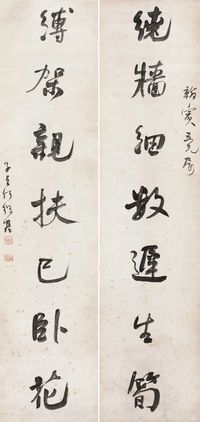 五兄屬
繞牆細數遲生筍
縛架親扶已臥花
子貞何紹基